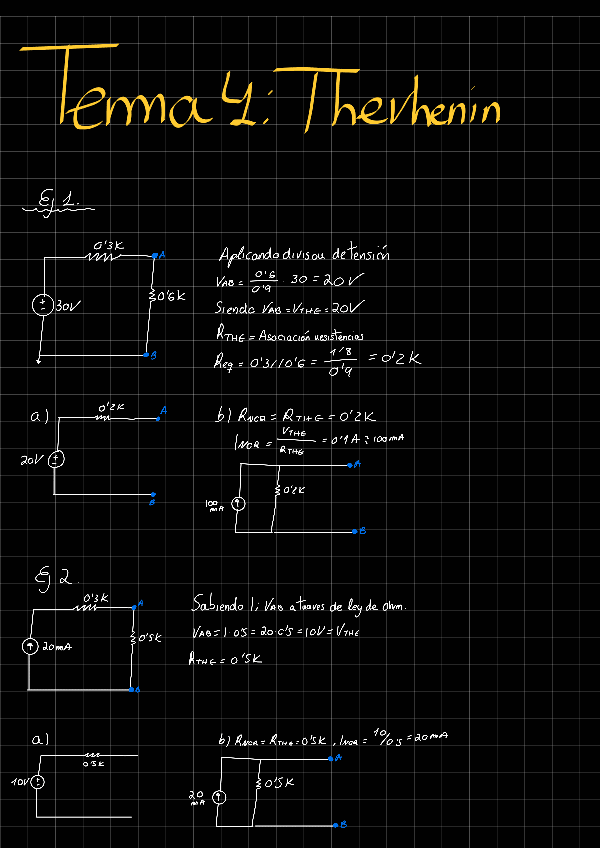 Tema 4: Thevhenin
Ej 1.
0'3K
A
30V
0'6K
B
Aplicando divisor de tensión
VAB = 0'6/0'9 · 30 = 20V
Siendo VAB = VTHE = 20V
RTHE = Asociación resistencias
Req = 0'3//0'6 = 1'8/0'9 = 0'2K
a)
0'2K
A
20V
B
b) RNOR = RTHE = 0'2K
INOR = VTHE/RTHE = 0'1A = 100mA
A
100 mA
0'2K
B
Ej 2.
0'3K
A
20mA
0'5K
B
Sabiendo I; VAB a traves de ley de Ohm.
VAB = I · 0'5 = 20 · 0'5 = 10V = VTHE
RTHE = 0'5K
a)
0'5K
10V
b) RNOR = RTHE = 0'5K , INOR = 10/0'5 = 20mA
A
20 mA
0'5K
B